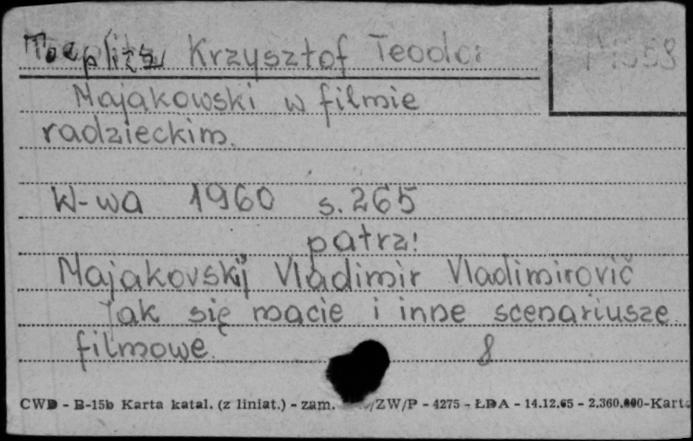 Toeplitz Krzysztof Teodor
Majakowski w filmie
radzieckim.
W-wa 1960 s. 265
patrz!
Majakovskij Vladimir Vladimirovič
Jak się macie i inne scenariusze
filmowe.
8
CWD - B-15b Karta katal. (z liniat.) - zam. /ZW/P - 4275 - ŁDA - 14.12.65 - 2.360.000-Karta